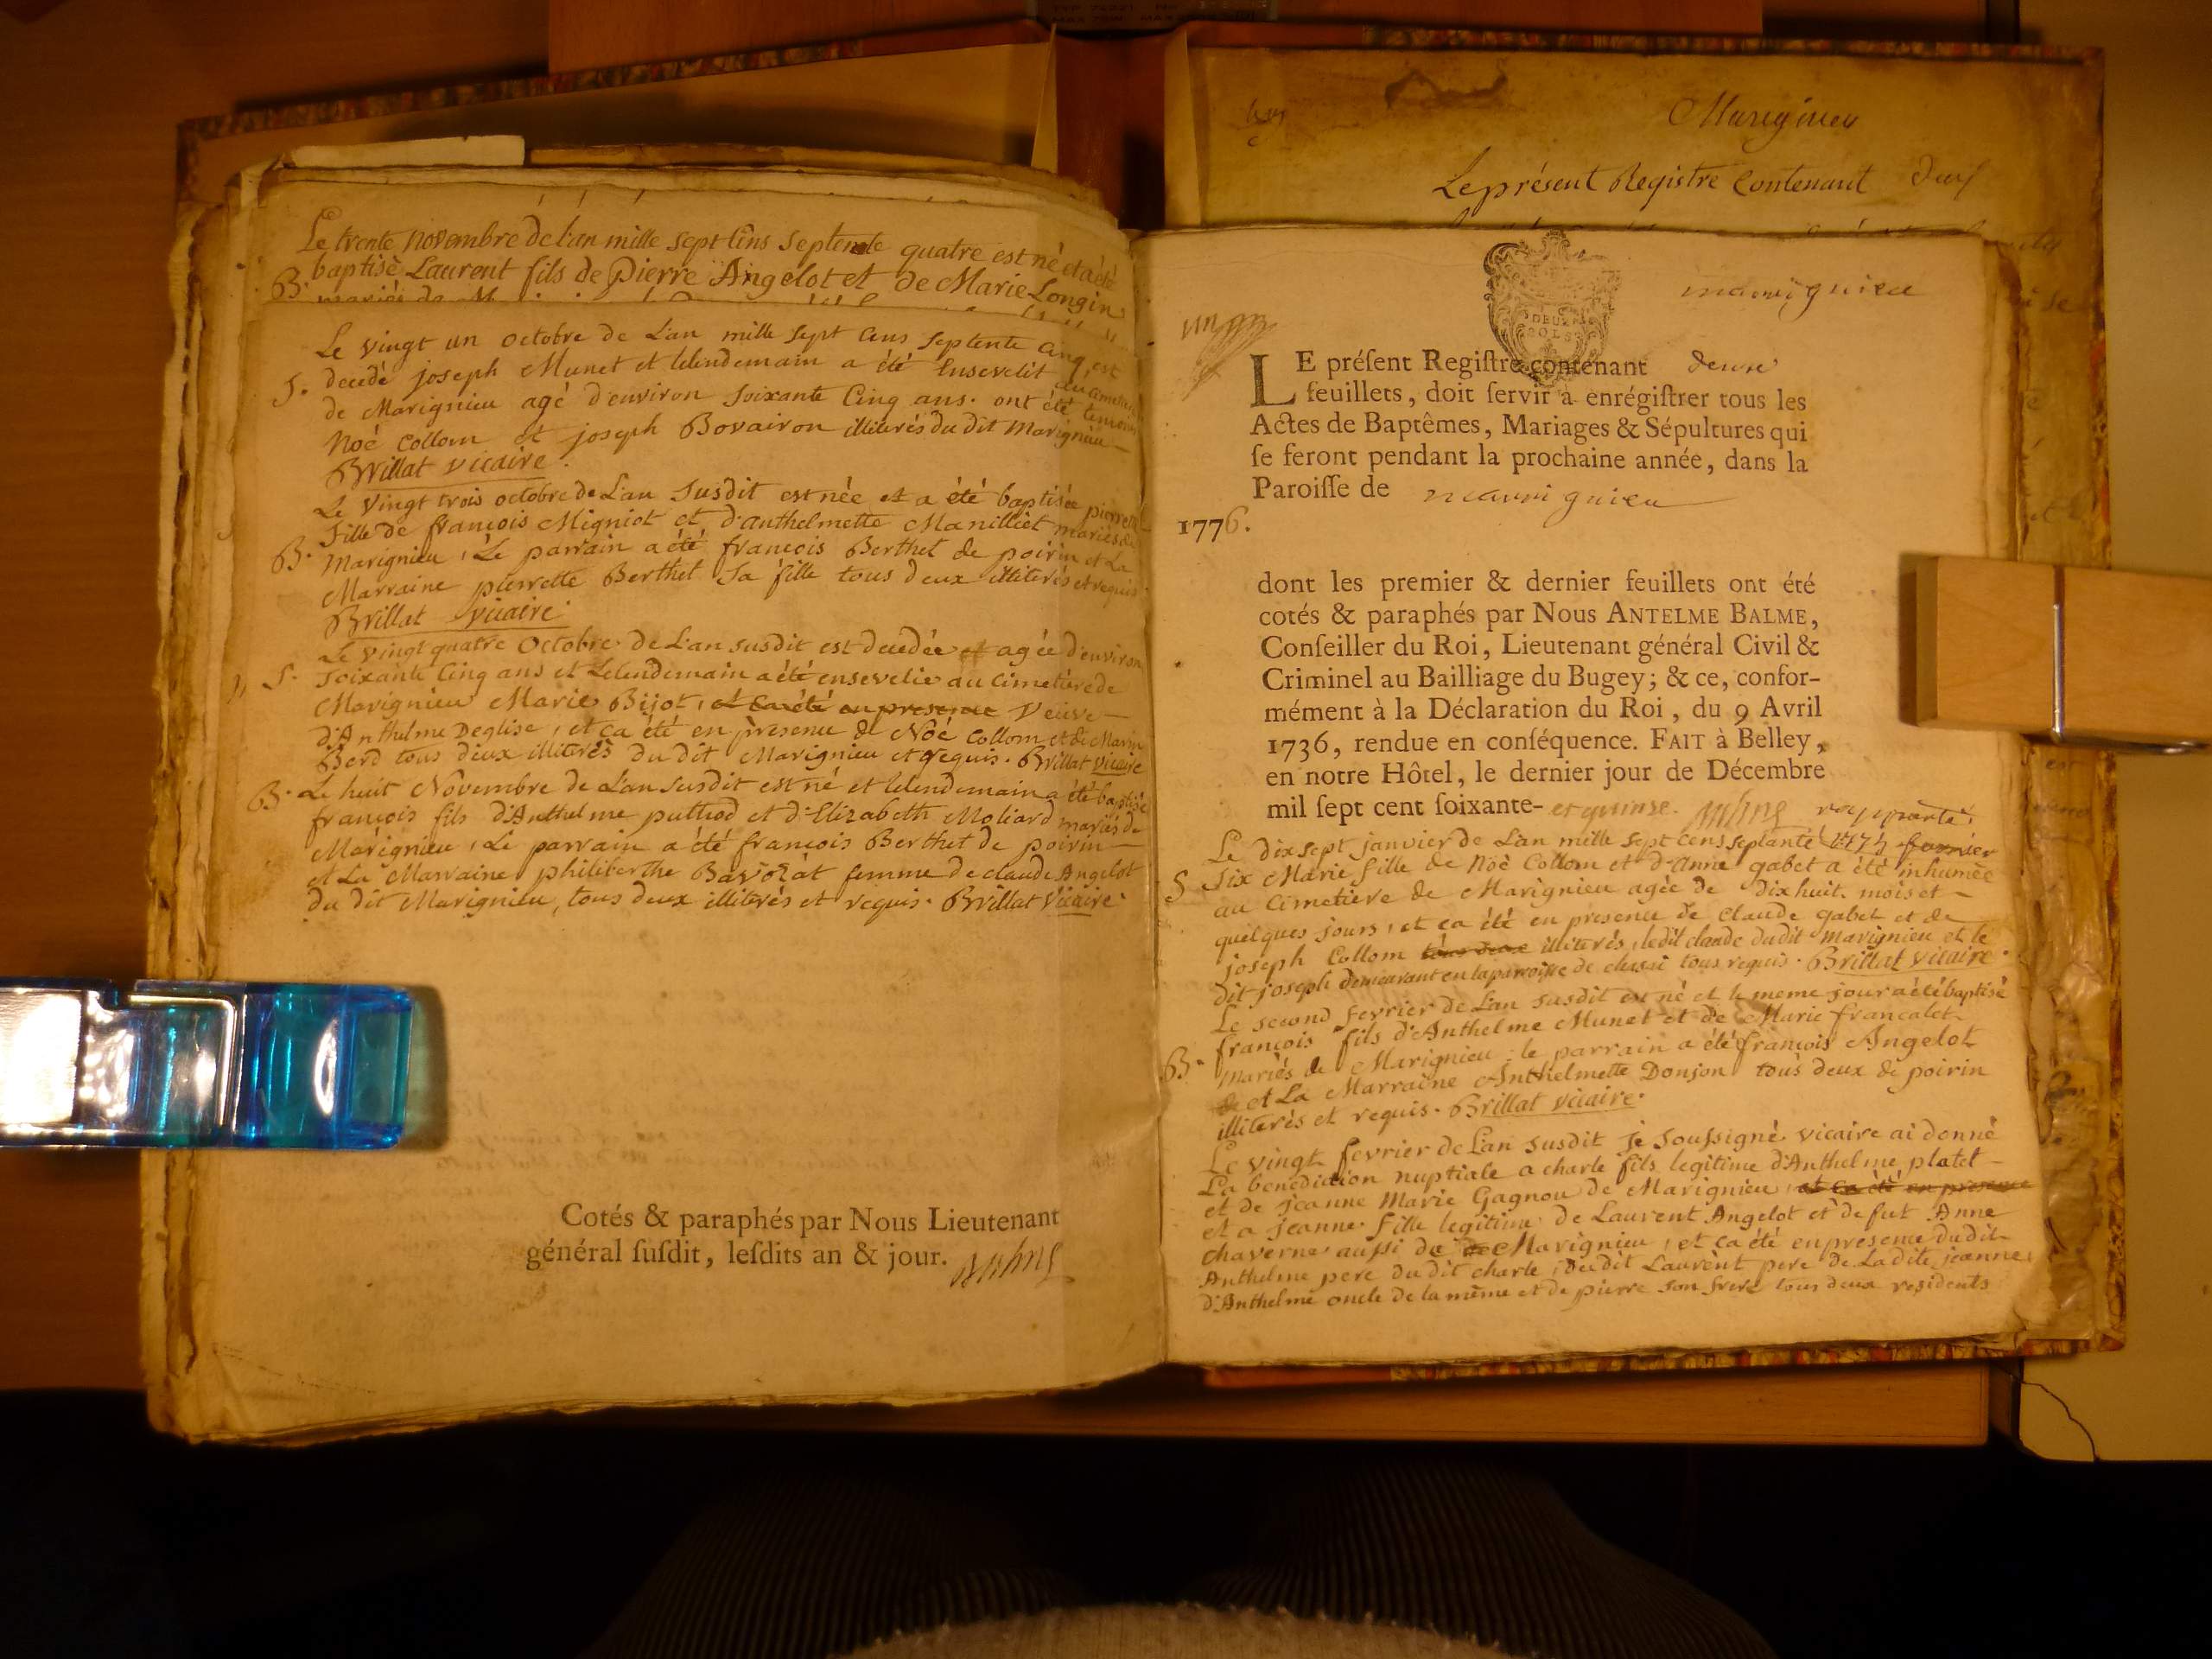 Le trente novembre de l'an mille sept cens septente quatre est né et a été
baptisé Laurent fils de Pierre Angelot et de Marie Longin
B.
Le vingt un octobre de L'an mille sept cens septente cinq, est
S. decedé joseph Munet et lelendemain a été ensevelit au cimetiere
de Marignieu agé d'environ soixante cinq ans. ont été temoins
Noé Collom et joseph Bovairon illiterés du dit Marignieu
Brillat vicaire.
Le vingt trois octobre de L'an susdit est née et a été baptisée pierrette
fille de françois Migniot et d'anthelmette Manilliet mariés de
B. Marignieu, Le parrain a été françois Berthet de poirin et La
Marraine pierrette Berthet sa fille tous deux illiterés et requis
Brillat vicaire.
Le vingt quatre Octobre de L'an susdit est decedée et agée d'environ
S. soixante cinq ans et Lelendemain a été ensevelie au cimetiere de
Marignieu Marie Bijot, et ca été en presence veuve
d'Anthelme Deglise, et ca été en presence de Noé Collom et de Marin
Berd tous deux illiterés du dit Marignieu et requis. Brillat vicaire
B. Le huit Novembre de L'an susdit est né et lelendemain a été baptisé
françois fils d'Anthelme puthod et d'Elizabeth Moliard mariés de
Marignieu, Le parrain a été françois Berthet de poirin
et La Marraine philiberthe Bavozat femme de claude Angelot
du dit Marignieu, tous deux illiterés et requis. Brillat vicaire.
Cotés & paraphés par Nous Lieutenant
général ſuſdit, leſdits an & jour.
Marignieu
Le présent Registre Contenant deux
marignieu
DEUX
SOLS
LE préſent Regiſtre contenant deux
feuillets, doit ſervir à enrégiſtrer tous les
Actes de Baptêmes, Mariages & Sépultures qui
ſe feront pendant la prochaine année, dans la
Paroiſſe de marignieu
1776.
dont les premier & dernier feuillets ont été
cotés & paraphés par Nous ANTELME BALME,
Conſeiller du Roi, Lieutenant général Civil &
Criminel au Bailliage du Bugey; & ce, confor-
mément à la Déclaration du Roi, du 9 Avril
1736, rendue en conſéquence. FAIT à Belley,
en notre Hôtel, le dernier jour de Décembre
mil ſept cent ſoixante- et quinse.
Le dixsept janvier de L'an mille sept cens septante
S six Marie fille de Noé Collom et d'Anne gabet a été inhumée
au cimetiere de Marignieu agée de dixhuit mois et
quelques jours, et ca été en presence de Claude gabet et de
joseph Collom tous deux illiterés, ledit claude dudit marignieu et le
dit joseph demeurant en la paroisse de tous requis. Brillat vicaire.
Le second fevrier de L'an susdit est né et le meme jour a été baptisé
françois fils d'Anthelme Munet et de Marie francalet
B. mariés de Marignieu. le parrain a été françois Angelot
de et La Marraine Anthelmette Donjon tous deux de poirin
illiterés et requis. Brillat vicaire.
Le vingt fevrier de L'an susdit je soussigné vicaire ai donné
La benediction nuptiale a charle fils legitime d'Anthelme platet
et de jeanne Marie Gagnou de Marignieu, et ca été en presence
et a jeanne fille legitime de Laurent Angelot et de fut Anne
chaverne aussi de de Marignieu, et ca été en presence du dit
Anthelme pere du dit charle, du dit Laurent pere de La dite jeanne
d'Anthelme oncle de la même et de pierre son frere tous deux residents